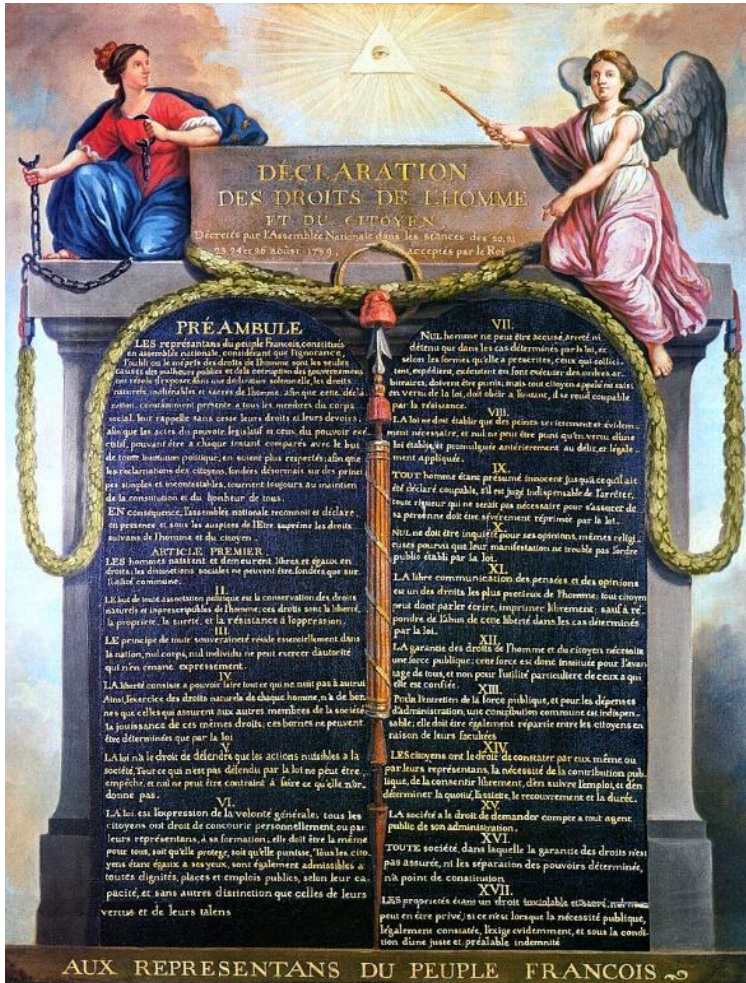 DÉCLARATION
DES DROITS DE L'HOMME
ET DU CITOYEN
Décretés par l'Assemblée Nationale dans les séances des 20, 21
23, 24 et 26 août 1789, acceptés par le Roi
PRÉAMBULE
LES représentans du peuple François, constitués
en assemblée nationale, considérant que l'ignorance,
l'oubli ou le mépris des droits de l'homme sont les seules
causes des malheurs publics et de la corruption des gouvernemens
ont résolu d'exposer dans une déclaration solemnelle, les droits
naturels, inaliénables et sacrés de l'homme; afin que cette décla
ration, constamment présente a tous les membres du corps
social, leur rappelle sans cesse leurs droits et leurs devoirs;
afin que les actes du pouvoir législatif et ceux du pouvoir exé
cutif, pouvant être a chaque instant comparés avec le but
de toute institution politique, en soient plus respectés; afin que
les reclamations des citoyens, fondées désormais sur des princi
pes simples et incontestables, tournent toujours au maintien
de la constitution et du bonheur de tous.
EN conséquence, l'assemblée nationale reconnoit et déclare,
en presence et sous les auspices de l'Etre suprême les droits
suivans de l'homme et du citoyen.
ARTICLE PREMIER.
LES hommes naissent et demeurent libres et égaux en
droits; les distinctions sociales ne peuvent être fondées que sur
l'utilité commune.
II.
LE but de toute association politique est la conservation des droits
naturels et inprescriptibles de l'homme; ces droits sont la liberté,
la proprieté, la sureté, et la résistance à l'oppression.
III.
LE principe de toute souveraineté réside essentiellement dans
la nation, nul corps, nul individu ne peut exercer d'autorité
qui n'en émane expressement.
IV.
LA liberté consiste a pouvoir faire tout ce qui ne nuit pas à autrui
Ainsi, l'exercice des droits naturels de chaque homme, n'a de bor
nes que celles qui assurent aux autres membres de la société
la jouissance de ces mêmes droits; ces bornes ne peuvent
être déterminées que par la loi
V.
LA loi n'a le droit de défendre que les actions nuisibles a la
société. Tout ce qui n'est pas défendu par la loi ne peut être
empêché, et nul ne peut être contraint à faire ce qu'elle n'or-
donne pas.
VI.
LA loi est l'expression de la volonté générale; tous les
citoyens ont droit de concourir personnellement, ou par
leurs représentans, à sa formation; elle doit être la même
pour tous, soit qu'elle protege, soit qu'elle punisse. Tous les cito
yens étant égaux a ses yeux, sont également admissibles a
toutes dignités, places et emplois publics, selon leur ca
pacité, et sans autres distinction que celles de leurs
vertus et de leurs talens
VII.
NUL homme ne peut être accusé, arreté ni
détenu que dans les cas déterminés par la loi, et
selon les formes qu'elle a prescrites, ceux qui sollici
tent, expédient, exécutent ou font exécuter des ordres ar-
bitraires, doivent être punis; mais tout citoyen appelé ou saisi
en vertu de la loi, doit obéir a l'instant, il se rend coupable
par la résistance.
VIII.
LA loi ne doit établir que des peines strictement et évidem-
ment nécessaire, et nul ne peut être puni qu'en vertu d'une
loi établie et promulguée antérierement au délit, et légale-
ment appliquée.
IX.
TOUT homme étant présumé innocent jusqu'a ce qu'il ait
été déclaré coupable, s'il est jugé indispensable de l'arrêter,
toute rigueur qui ne serait pas nécessaire pour s'assurer de
sa personne doit être sévèrement réprimée par la loi.
X.
NUL ne doit être inquiété pour ses opinions, mêmes religi
euses pourvu que leur manifestation ne trouble pas l'ordre
public établi par la loi.
XI.
LA libre communication des pensées et des opinions
est un des droits les plus precieux de l'homme; tout citoyen
peut dont parler écrire, imprimer librement; sauf à ré-
pondre de l'abus de cette liberté dans les cas déterminés
par la loi.
XII.
LA garantie des droits de l'homme et du citoyen nécessite
une force publique; cette force est donc instituée pour l'avan
tage de tous, et non pour l'utilité particulière de ceux a qui
elle est confiée.
XIII.
Pour l'entretien de la force publique, et pour les dépenses
d'administration, une contribution commune est indispen-
sable; elle doit être également répartie entre les citoyens en
raison de leurs facultées
XIV.
LES citoyens ont le droit de constater par eux même ou
par leurs représentans, la nécessité de la contribution pub
lique, de la consentir librement, d'en suivre l'emploi, et d'en
déterminer la quotité, l'assiette, le recouvrement et la durée.
XV.
LA société a le droit de demander compte a tout agent
public de son administration.
XVI.
TOUTE société, dans laquelle la garantie des droits n'est
pas assurée, ni les séparation des pouvoirs déterminée,
n'a point de constitution
XVII.
LES proprietés étant un droit inviolable et sacré, nul ne
peut en être privé, si ce n'est lorsque la nécessité publique,
légalement constatée, l'exige evidemment, et sous la condi
tion d'une juste et préalable indemnité
AUX REPRESENTANS DU PEUPLE FRANCOIS